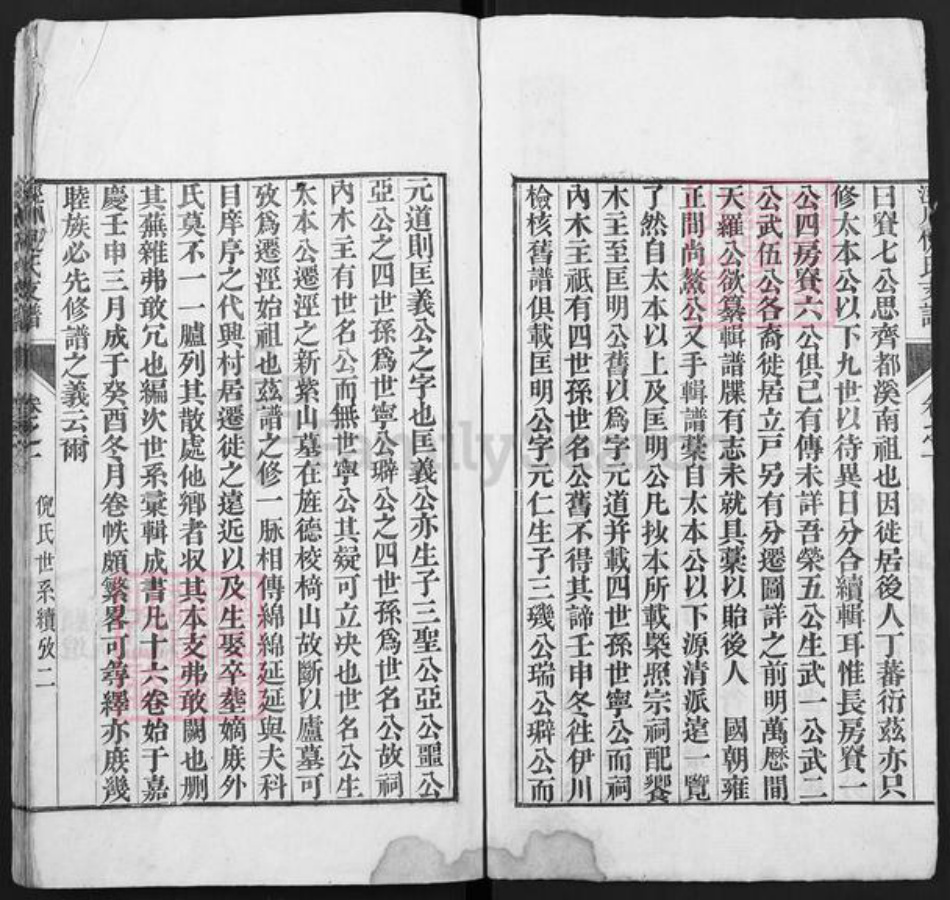 曰賨七公思齊都溪南祖也因徙居後人丁蕃衍茲亦只
修太本公以下九世以待異日分合續輯耳惟長房賨一
公四房賨六公俱已有傳未詳吾榮五公生武一公武二
公武伍公各裔徙居立戸另有分遷圖詳之前明萬歷間
天羅公欲纂輯譜牒有志未就具藁以貽後人　國朝雍
正間尚嶅公又手輯譜藁自太本公以下源清派遠一覽
了然自太本以上及匡明公凡抄本所載槩照宗祠配饗
木主至匡明公舊以爲字元道并載四世孫世寧公而祠
內木主祇有四世孫世名公舊不得其諦壬申冬徃伊川
檢核舊譜俱載匡明公字元仁生子三璣公瑞公璑公而
元道則匡義公之字也匡義公亦生子三聖公亞公噩公
亞公之四世孫爲世寧公璑公之四世孫爲世名公故祠
內木主有世名公而無世寧公其疑可立决也世名公生
太本公遷涇之新紫山墓在旌德校椅山故斷以廬墓可
攷爲遷涇始祖也茲譜之修一脈相傳綿綿延延與夫科
目庠序之代興村居遷徙之遠近以及生娶卒塟嫡庶外
氏莫不一一臚列其散處他鄉者収其本支弗敢闕也刪
其蕪雜弗敢冗也編次世系彙輯成書凡十六卷始于嘉
慶壬申三月成于癸酉冬月卷帙頗繁畧可尋繹亦庶幾
睦族必先修譜之義云爾
倪氏世系續攷二